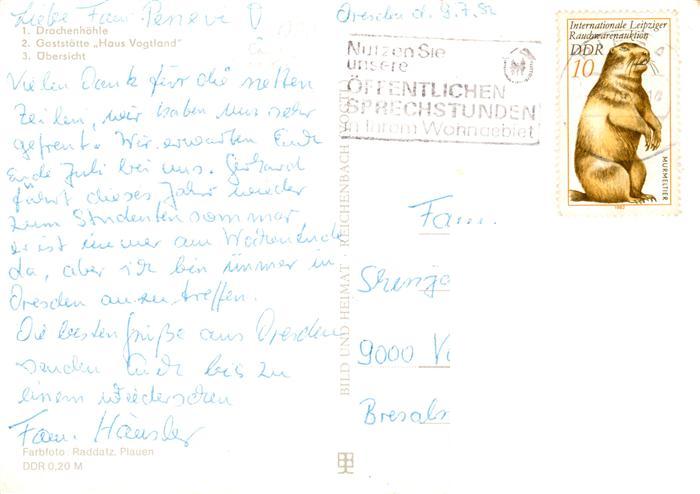 Liebe Fam. Penevi
1. Drachenhöhle
2. Gaststätte „Haus Vogtland"
3. Übersicht
Vielen Dank für die netten
Zeilen, wir haben uns sehr
gefreut. Wir erwarten Euch
Ende Juli bei uns. Gerhard
fährt dieses Jahr wieder
zum Studentensommer,
er ist immer am Wochenende
da, aber ich bin immer in
Dresden anzutreffen.
Die besten Grüße aus Dresden
senden Euch bis zu
einem Wiedersehen
Fam. Häusler
Farbfoto: Raddatz, Plauen
DDR 0,20 M
BILD UND HEIMAT · REICHENBACH (VOGTL)
Dresden d. 9.7.82
Nutzen Sie
unsere
ÖFFENTLICHEN
SPRECHSTUNDEN
in Ihrem Wohngebiet
Internationale Leipziger
Rauchwarenauktion
DDR
10
MURMELTIER
1982
Fam.
9000